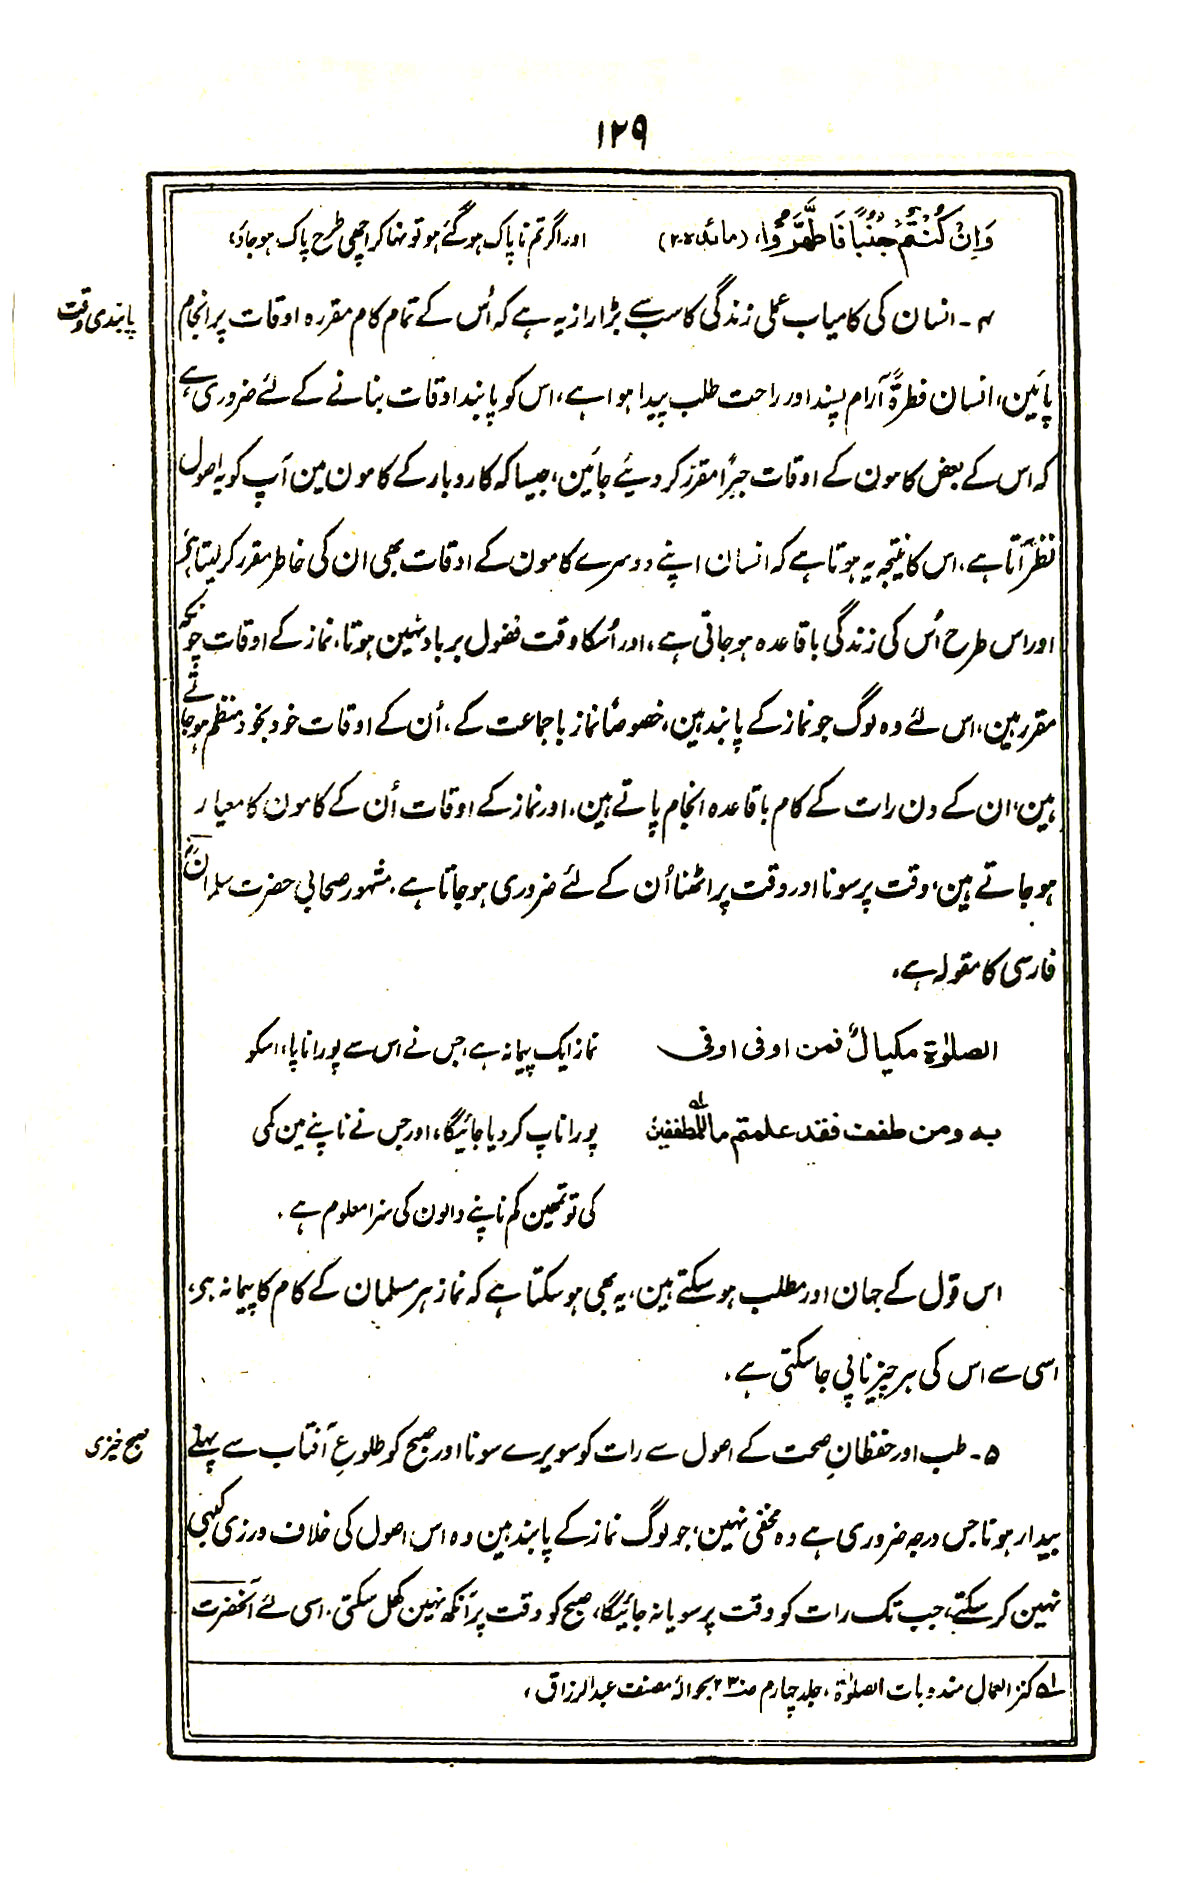 ۱۲۹
وَاِنْ كُنْتُمْ جُنُبًا فَاطَّهَّرُوا، (مائدہ-۲) اور اگر تم ناپاک ہو گئے ہو تو نہا کر اچھی طرح پاک ہو جاؤ،
پابندی وقت
۴- انسان کی کامیاب عملی زندگی کا سب سے بڑا راز یہ ہے کہ اُس کے تمام کام مقررہ اوقات پر انجام
پائین، انسان فطرۃً آرام پسند اور راحت طلب پیدا ہوا ہے، اس کو پابند اوقات بنانے کے لئے ضروری ہے،
کہ اس کے بعض کامون کے اوقات جبراً مقرر کر دیئے جائین، جیسا کہ کاروبار کے کامون مین آپ کو یہ اصول
نظر آتا ہے، اس کا نتیجہ یہ ہوتا ہے کہ انسان اپنے دوسرے کامون کے اوقات بھی ان کی خاطر مقرر کر لیتا ہے
اور اس طرح اُس کی زندگی باقاعدہ ہو جاتی ہے، اور اُسکا وقت فضول برباد نہین ہوتا، نماز کے اوقات چونکہ
مقرر ہین، اس لئے وہ لوگ جو نماز کے پابند ہین، خصوصاً نماز باجماعت کے، اُن کے اوقات خود بخود منظم ہو جاتے
ہین، ان کے دن رات کے کام باقاعدہ انجام پاتے ہین، اور نماز کے اوقات اُن کے کامون کا معیار
ہو جاتے ہین، وقت پر سونا اور وقت پر اٹھنا اُن کے لئے ضروری ہو جاتا ہے. مشہور صحابی حضرت سلمان
فارسی کا مقولہ ہے،
الصلوٰۃ مکیالٌ فمن اوفی اوفی نماز ایک پیمانہ ہے، جس نے اس سے پورا ناپا، اسکو
بہ ومن طفف فقد علمتم ماللمطففین؂۱ پورا ناپ کر دیا جائیگا، اور جس نے ناپنے مین کمی
کی تو تمھین کم ناپنے والون کی سزا معلوم ہے.
اس قول کے جہان اور مطلب ہو سکتے ہین، یہ بھی ہو سکتا ہے کہ نماز ہر مسلمان کے کام کا پیمانہ ہے،
اسی سے اس کی ہر چیز ناپی جا سکتی ہے.
صبح خیزی
۵- طب اور حفظانِ صحت کے اصول سے رات کو سویرے سونا اور صبح کو طلوعِ آفتاب سے پہلے
بیدار ہونا جس درجہ ضروری ہے وہ مخفی نہین، جو لوگ نماز کے پابند ہین وہ اس اصول کی خلاف ورزی کبھی
نہین کر سکتے، جب تک رات کو وقت پر سویا نہ جائیگا، صبح کو وقت پر آنکھ نہین کھل سکتی. اسی لئے آنحضرت
؂۱ کنز العمال مندوبات الصلوٰۃ، جلد چہارم صـ۲۳۰ بحوالہ مصنف عبدالرزاق،